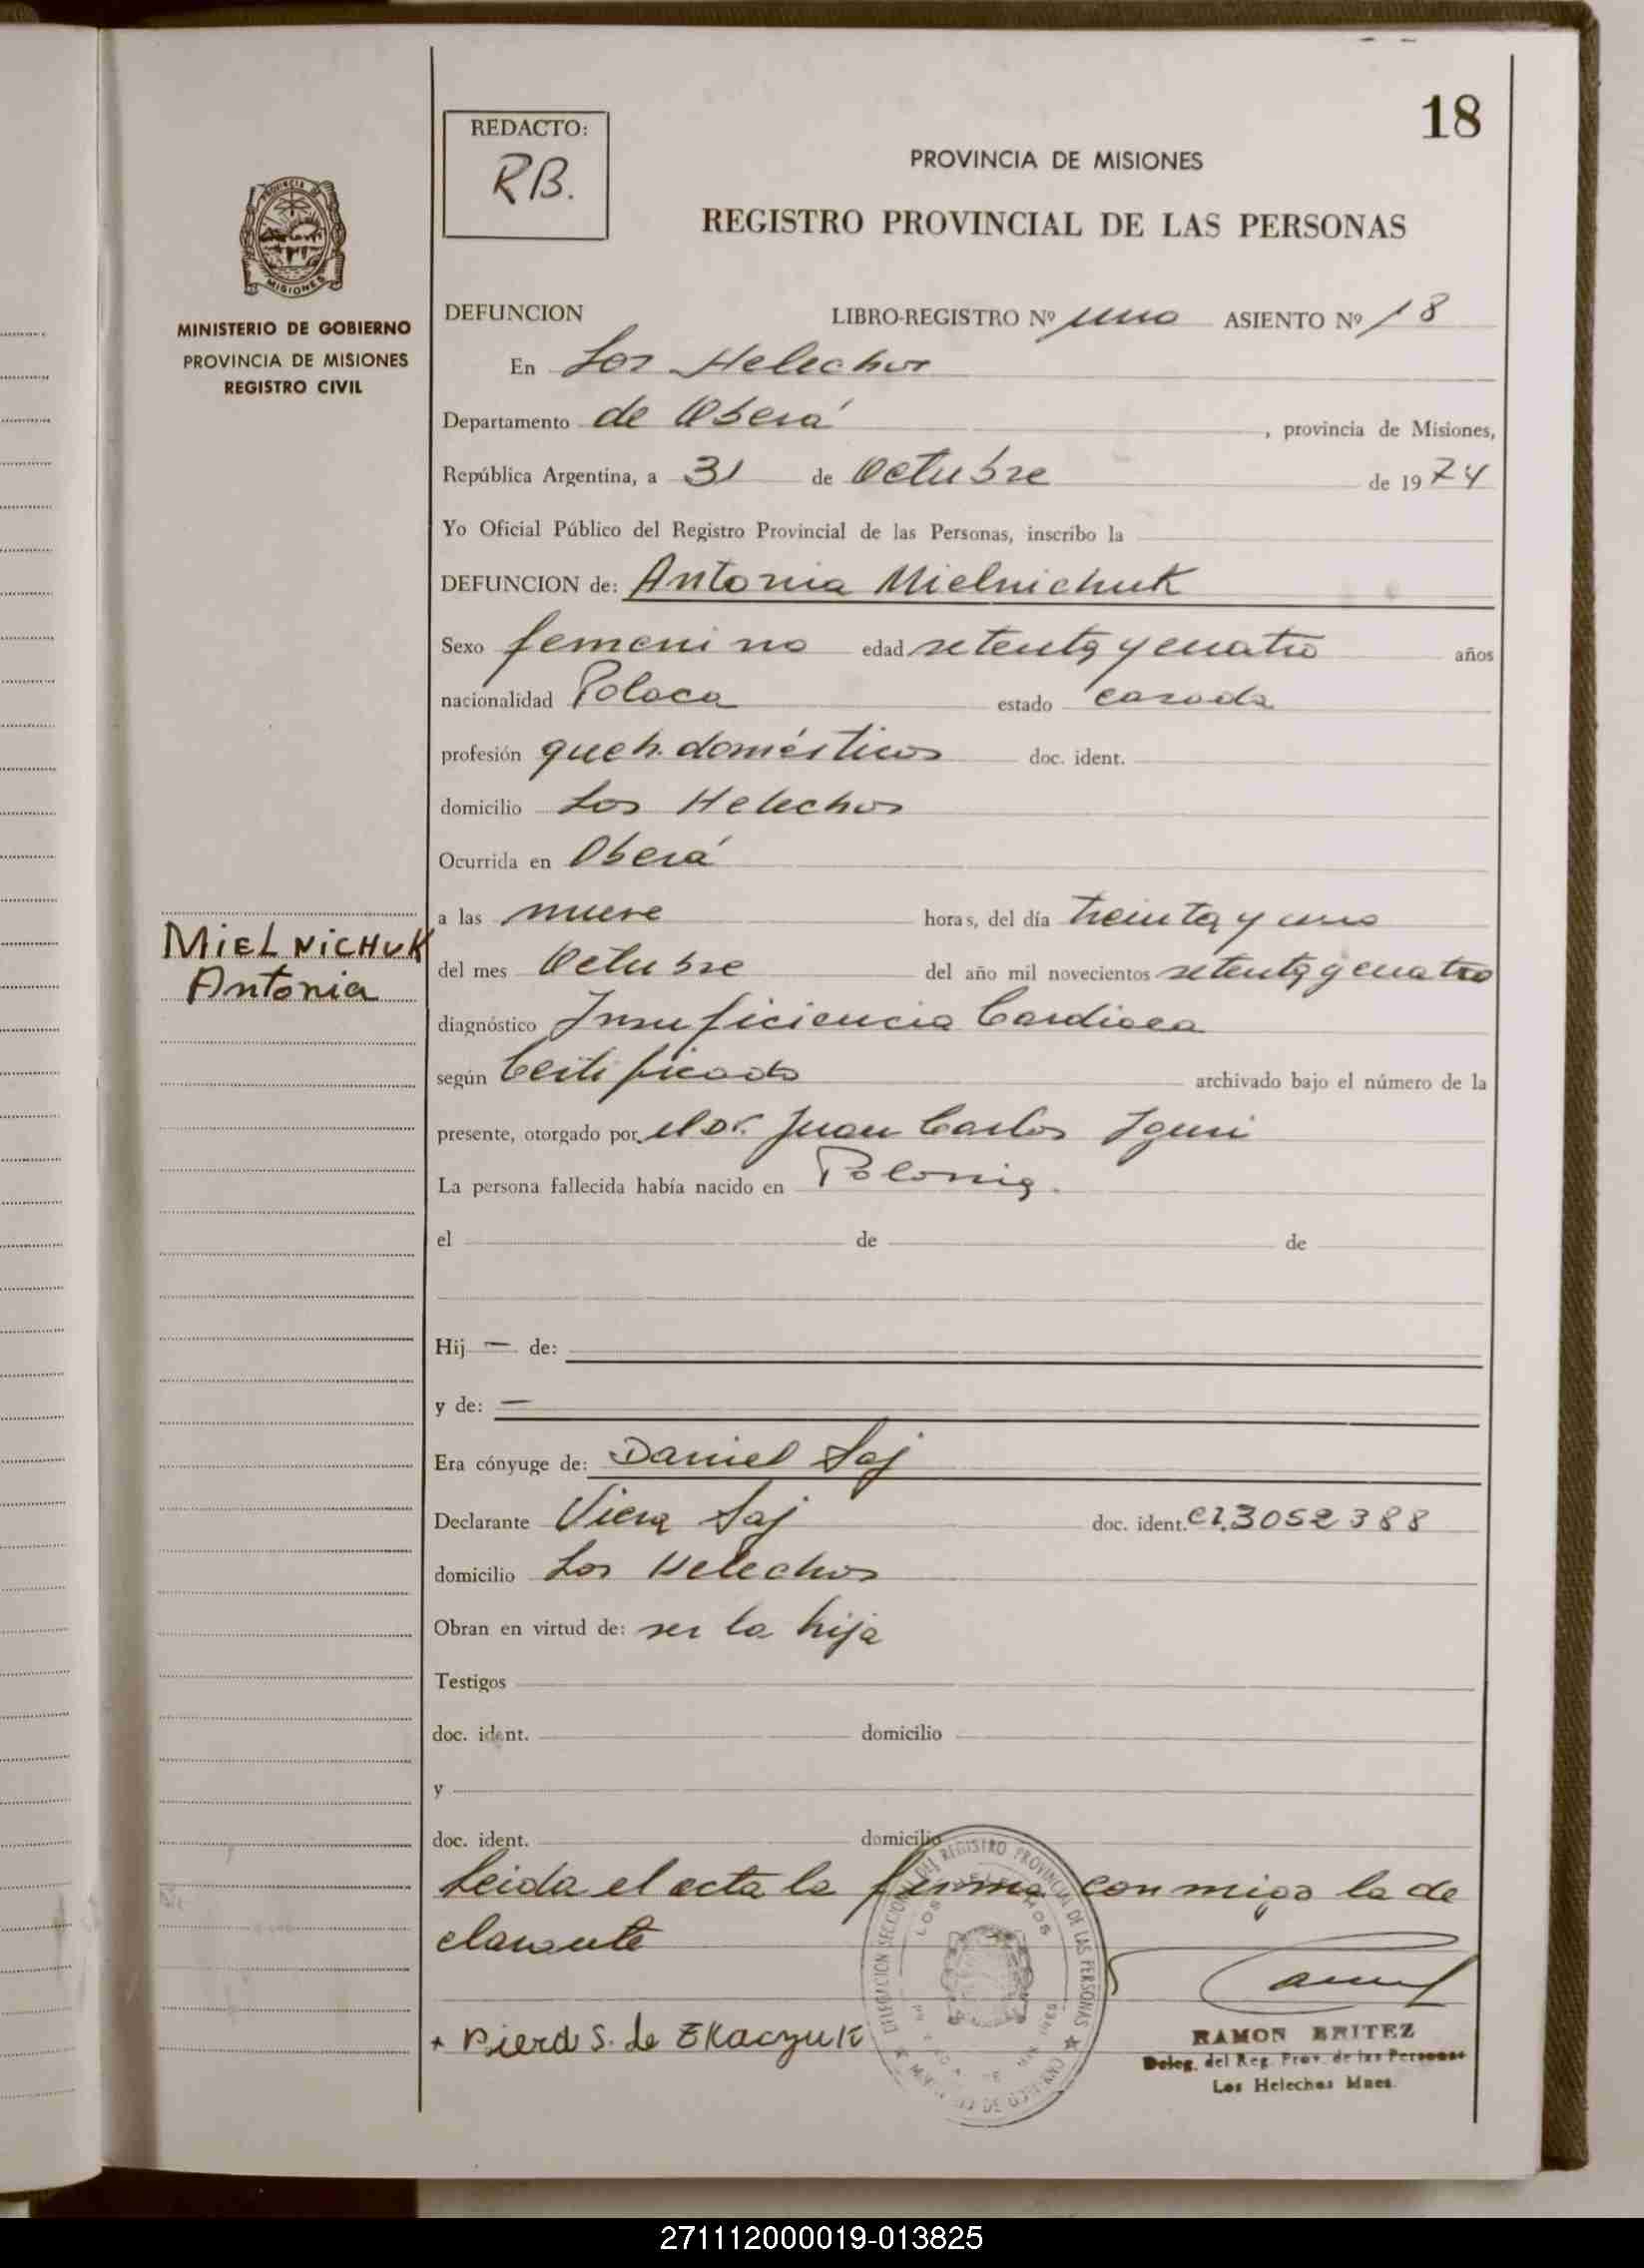 18
REDACTO:
RB.
PROVINCIA DE MISIONES
REGISTRO PROVINCIAL DE LAS PERSONAS
MISIONES
MINISTERIO DE GOBIERNO
PROVINCIA DE MISIONES
REGISTRO CIVIL
DEFUNCION LIBRO-REGISTRO Nº uno ASIENTO Nº 18
En Los Helechos
Departamento de Oberá, provincia de Misiones,
República Argentina, a 31 de Octubre de 1974
Yo Oficial Público del Registro Provincial de las Personas, inscribo la
DEFUNCION de: Antonia Mielnichuk
Sexo femenino edad setenta y cuatro años
nacionalidad Polaca estado casada
profesión queh. domésticos doc. ident.
domicilio Los Helechos
Ocurrida en Oberá
a las nueve horas, del día treinta y uno
MIELNICHUK
Antonia
del mes Octubre del año mil novecientos setenta y cuatro
diagnóstico Insuficiencia Cardiaca
según Certificado archivado bajo el número de la
presente, otorgado por el Dr. Juan Carlos
La persona fallecida había nacido en Polonia.
el de de
Hij — de:
y de: —
Era cónyuge de: Daniel Saj
Declarante Viera Saj doc. ident. CI. 3052388
domicilio Los Helechos
Obran en virtud de: ser la hija
Testigos
doc. ident. domicilio
y
doc. ident. domicilio
Leida el acta la firma conmigo la de
clarante
DELEGACION SECCIONAL DEL REGISTRO PROVINCIAL DE LAS PERSONAS
LOS HELECHOS
S. de
RAMON BRITEZ
Deleg. del Reg. Prov. de las Personas
Los Helechos Mnes.
271112000019-013825